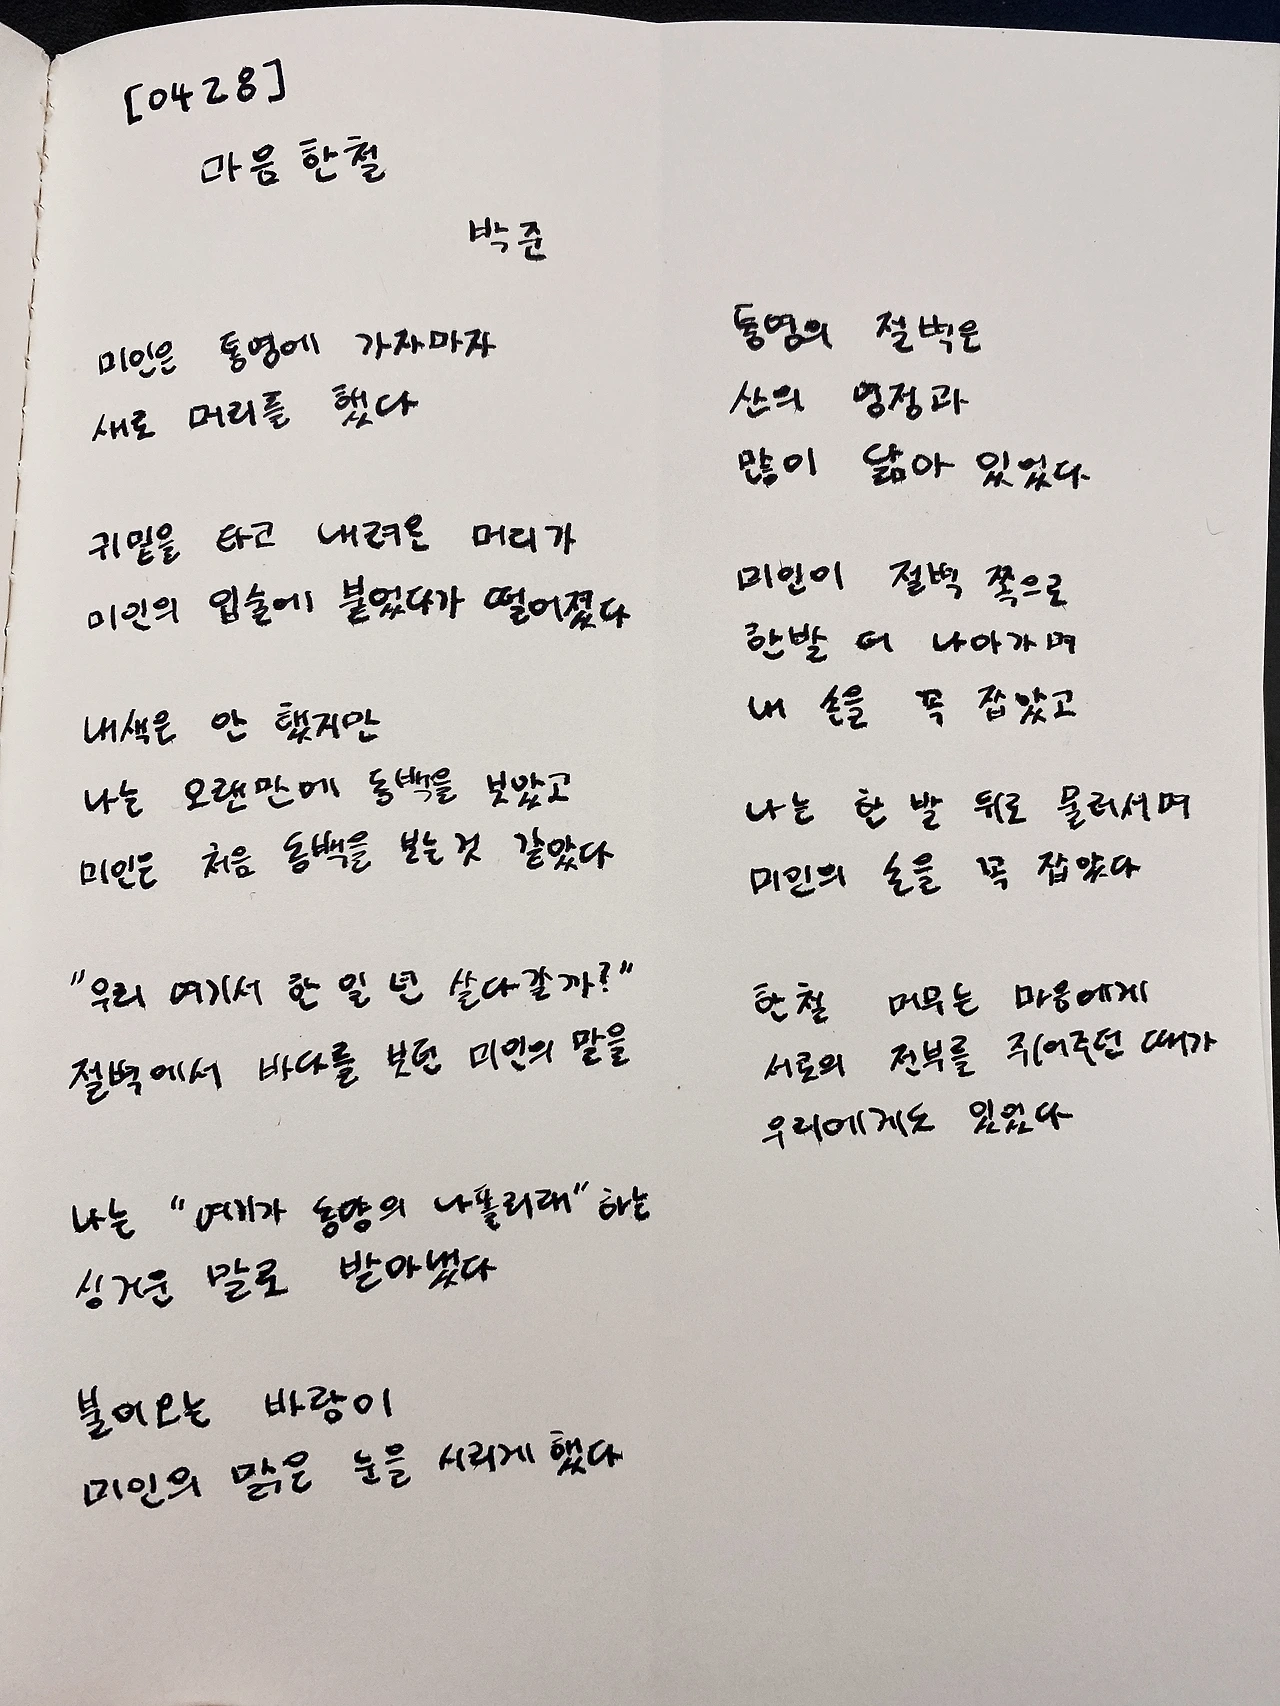 [0428]
마음 한철
박준
미인은 통영에 가자마자
새로 머리를 했다
귀밑을 타고 내려온 머리가
미인의 입술에 붙었다가 떨어졌다
내색은 안 했지만
나는 오랜만에 동백을 보았고
미인은 처음 동백을 보는것 같았다
"우리 여기서 한 일 년 살다갈까?"
절벽에서 바다를 보던 미인의 말을
나는 "여기가 동양의 나폴리래" 하는
싱거운 말로 받아냈다
불어오는 바람이
미인의 맑은 눈을 시리게 했다
통영의 절벽은
산의 영정과
많이 닮아 있었다
미인이 절벽 쪽으로
한발 더 나아가며
내 손을 꼭 잡았고
나는 한 발 뒤로 물러서며
미인의 손을 꼭 잡았다
한철 머무는 마음에게
서로의 전부를 쥐어주던 때가
우리에게도 있었다